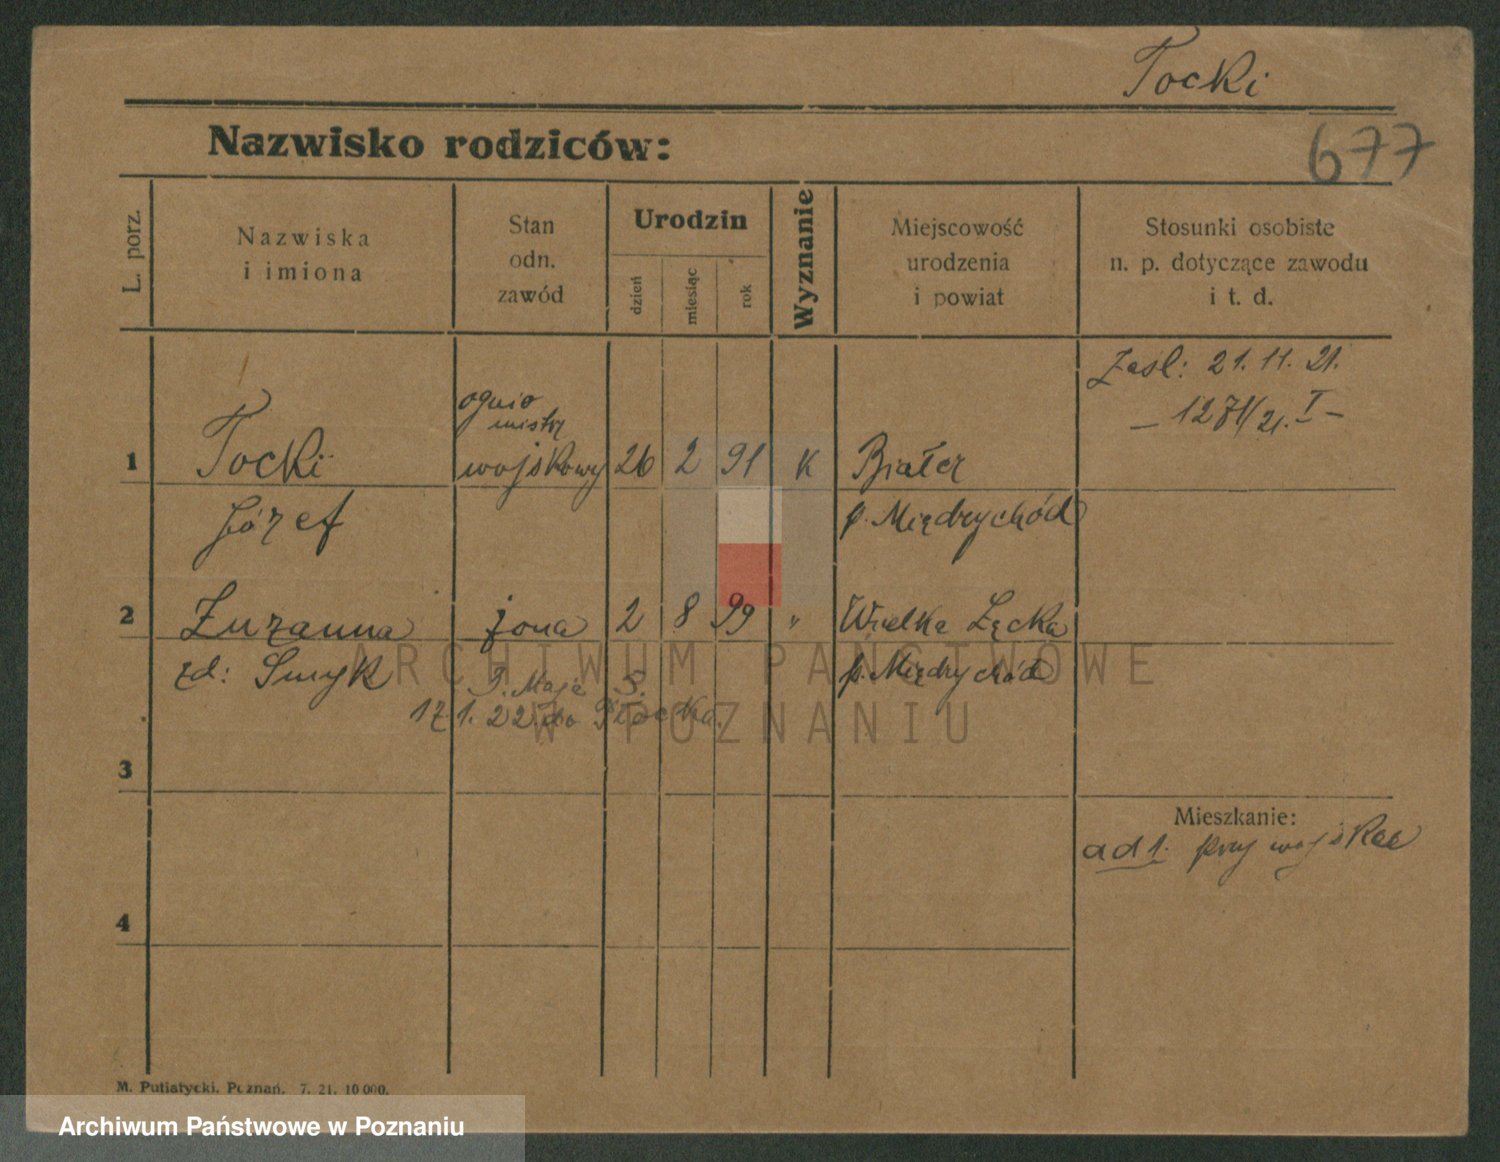 Tocki
677
Nazwisko rodziców:
L. porz.
Nazwiska
i imiona
Stan
odn.
zawód
Urodzin
dzień
miesiąc
rok
Wyznanie
Miejscowość
urodzenia
i powiat
Stosunki osobiste
n. p. dotyczące zawodu
i t. d.
Zasl: 21. 11. 21.
ognio
mistrz
1 Tocki wojskowy 26 2 91 K
Józef p. Międzychód
2 Zuzanna żona 2 8 99 " Wielka Łęcka
zd: Smyk p. Międzychód
3. Maja
17.1.22. do
3
Mieszkanie:
ad 1. przy wojsku
4
M. Putiatycki. Poznań. 7. 21. 10 000.
ARCHIWUM PAŃSTWOWE
W POZNANIU
Archiwum Państwowe w Poznaniu